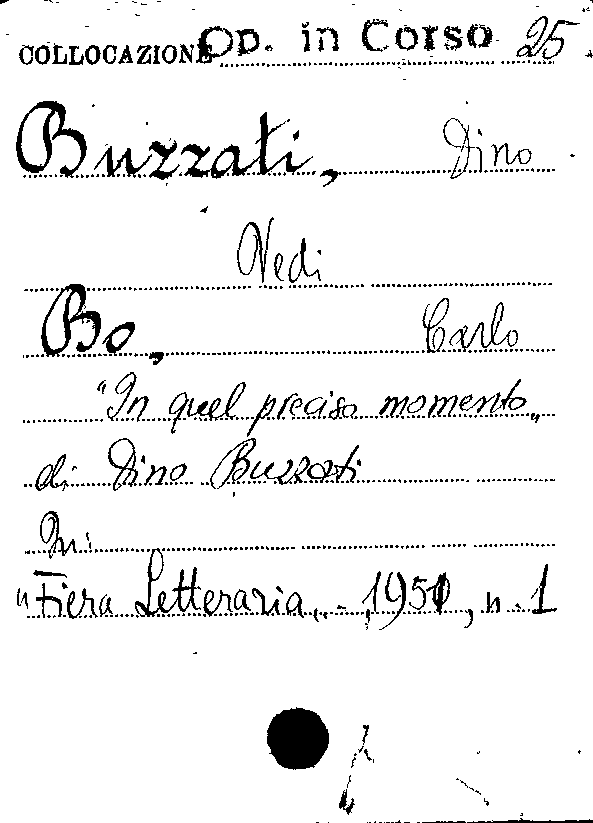 COLLOCAZIONE Op. in Corso 25
Buzzati, Dino
Vedi
Bo, Carlo
"In quel preciso momento"
di Dino Buzzati
In:
"Fiera Letteraria" - 1951, n. 1